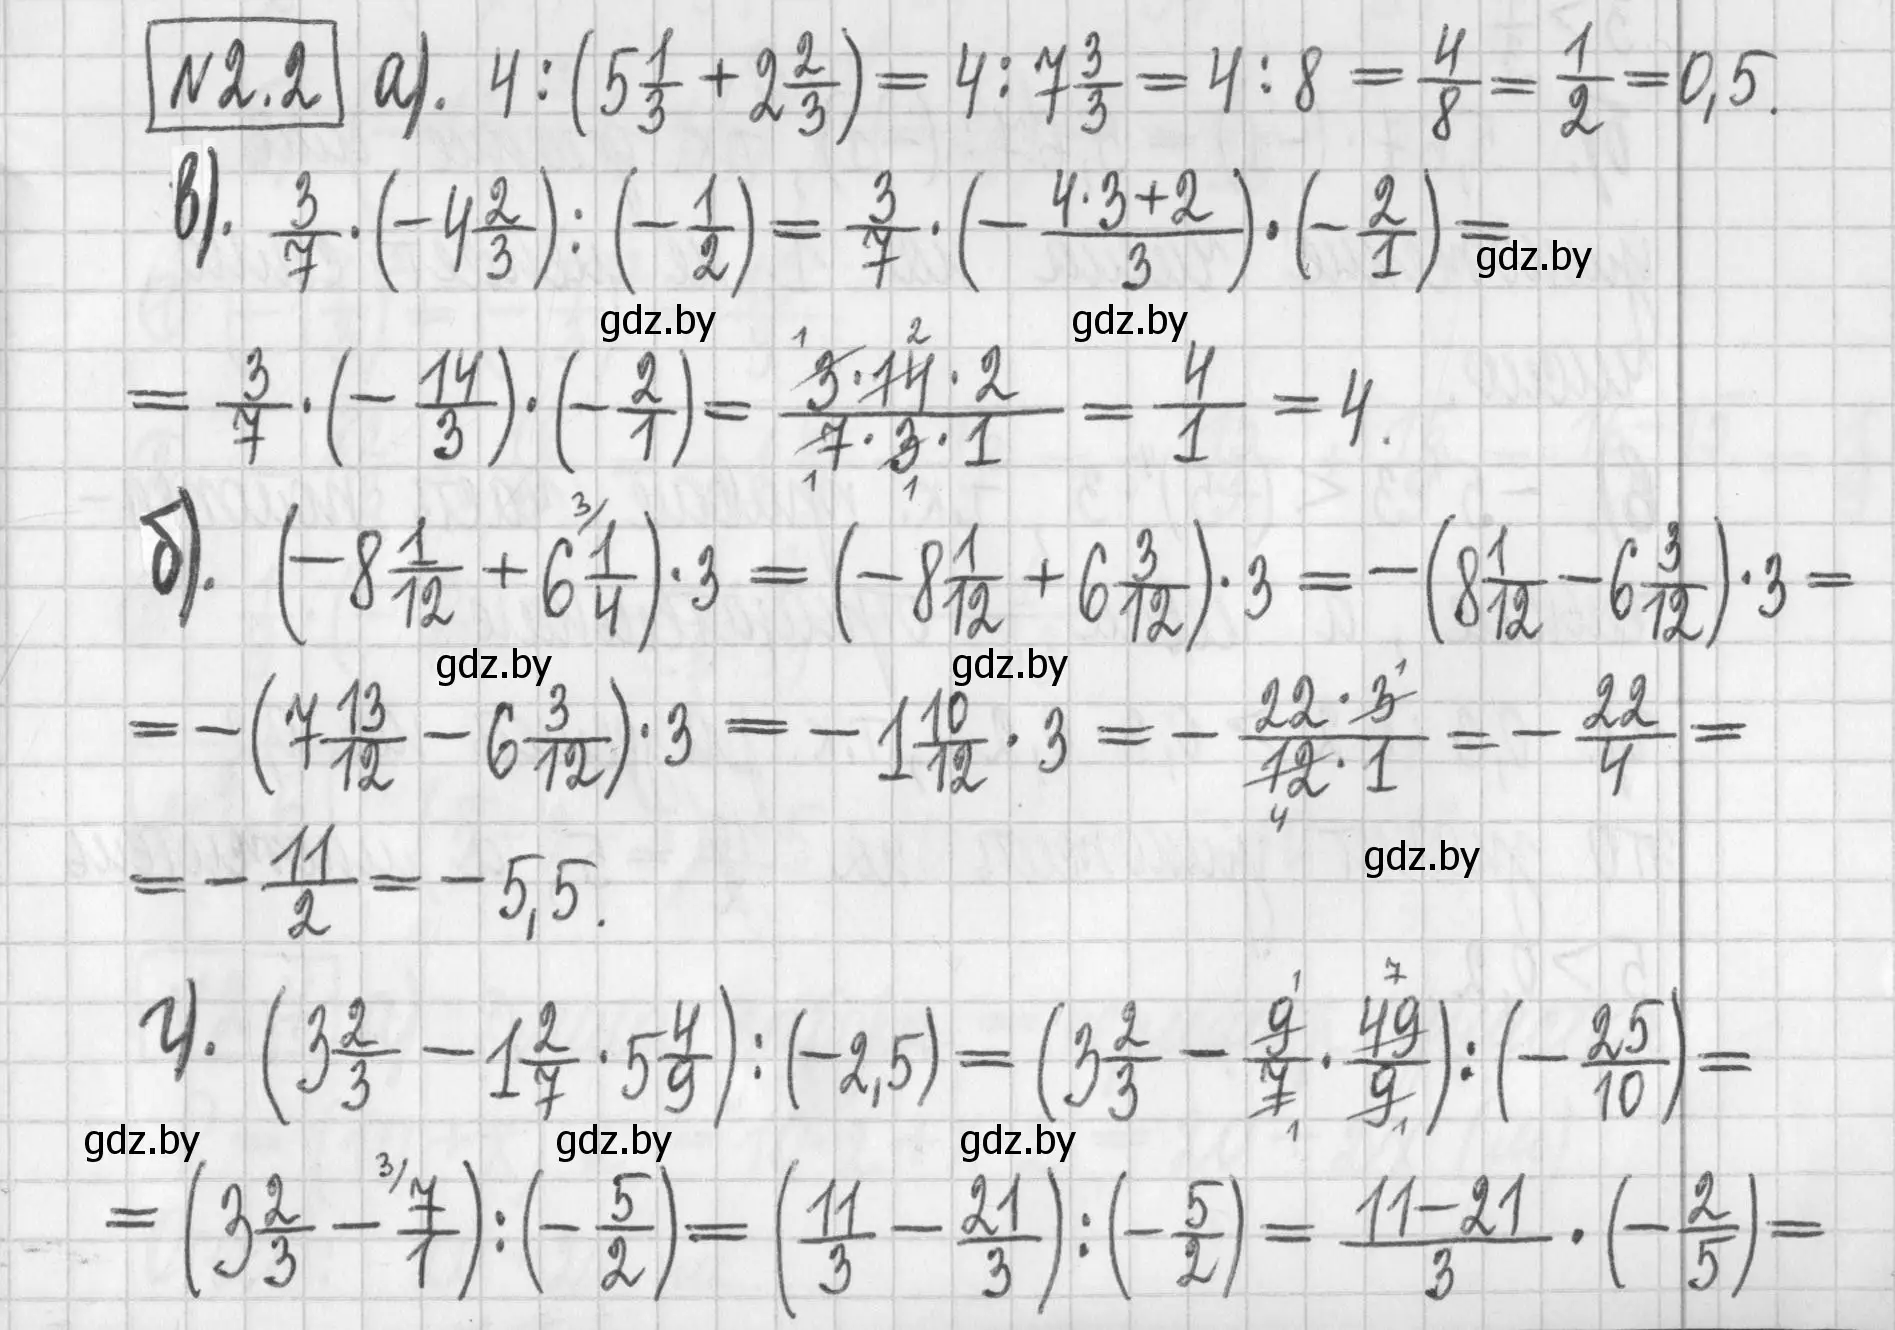 №2.2 а). 4 : (5 1/3 + 2 2/3) = 4 : 7 3/3 = 4 : 8 = 4/8 = 1/2 = 0,5.
в). 3/7 · (−4 2/3) : (−1/2) = 3/7 · (− (4·3+2)/3) · (−2/1) =
gdz.by
gdz.by gdz.by
= 3/7 · (−14/3) · (−2/1) = (3·14·2)/(7·3·1) = 4/1 = 4.
б). (−8 1/12 + 6 1/4) · 3 = (−8 1/12 + 6 3/12) · 3 = −(8 1/12 − 6 3/12) · 3 =
gdz.by gdz.by
= −(7 13/12 − 6 3/12) · 3 = −1 10/12 · 3 = − (22·3)/(12·1) = −22/4 =
gdz.by
= −11/2 = −5,5.
г). (3 2/3 − 1 2/7 · 5 4/9) : (−2,5) = (3 2/3 − 9/7 · 49/9) : (−25/10) =
gdz.by gdz.by gdz.by
= (3 2/3 − 7/1) : (−5/2) = (11/3 − 21/3) : (−5/2) = (11−21)/3 · (−2/5) =